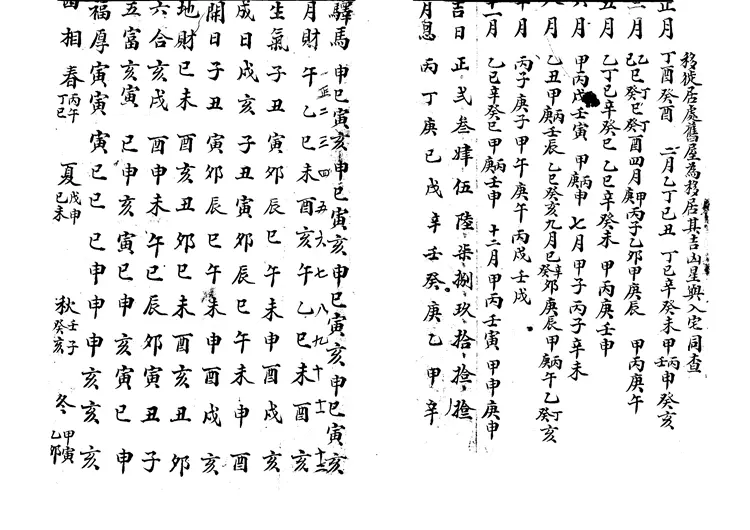 移徙居處舊屋為移居其吉凶星與入宅同查
正月 丁酉癸酉 二月乙丁巳丑 丁巳辛癸未甲丙壬申癸亥
三月 乙巳癸丁巳癸丁酉四月甲庚丙子乙卯甲庚辰 甲丙庚午
五月 乙丁巳辛癸巳 乙巳辛癸未 甲丙庚壬申
六月 甲丙戌壬寅 甲庚丙申 七月甲子丙子辛未
八月 乙丑甲庚丙壬辰 乙巳癸亥九月巳癸辛卯庚辰甲庚丙午乙癸丁亥
十月 丙子庚子甲午庚午丙戌壬戌
十一月 乙巳辛癸巳甲庚丙壬申 十二月甲丙壬寅 甲申庚申
吉日 正弍叁肆伍陸柒捌玖拾拾拾
月息 丙丁庚巳戌辛壬癸庚乙甲辛
驛馬 申巳寅亥申巳寅亥申巳寅亥申巳寅亥
正二三四五六七八九十十一十二
月財 午乙巳未酉亥午乙巳未酉亥
生氣 子丑寅卯辰巳午未申酉戌亥
成日 戌亥子丑寅卯辰巳午未申酉
開日 子丑寅卯辰巳午未申酉戌亥
地財 巳未酉亥丑卯巳未酉亥丑卯
六合 亥戌酉申未午巳辰卯寅丑子
五富 亥寅巳申亥寅巳申亥寅巳申
福厚 寅寅寅巳巳巳申申申亥亥亥
四相 春丙午丁巳 夏戊申己未 秋壬子癸亥 冬甲寅乙卯